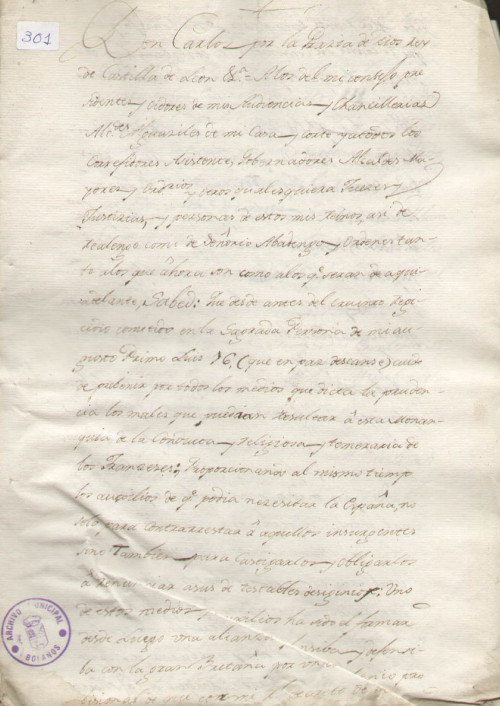 301
Don Carlos por la Gracia de Dios Rey
de Castilla de Leon &a. Alos del mi consejo pre
sidentes y oidores de mis Audiencias y Chancillerias
Alcdes Alguaciles de mi Casa y Corte y a todos los
Corregidores Asistente, Gobernadores Alcaldes Ma-
yores y Ordinarios y otros qualesquiera Jueces y
Justicias, y personas de estos mis Reinos, asi de
Realengo como de Señorio Abadengo y Ordenes tan-
to alos que ahora son como alos qe. seran de aqui
adelante, Sabed: que desde antes del cruento Regi-
cidio cometido en la Sagrada Persona de mi au-
gusto Primo Luis 16, (que en paz descanse) cuidé
de por todos los medios que dicta la pruden-
cia los males que pudieran resultar â esta Monar-
quia de la Conducta y religiosa y temeraria de
los Franceses; Proporcionarnos al mismo tiempo
los auxilios de qe. podia necesitar la España, no
solo para contrarrestar â aquellos insurgentes
sino Tambien para Castigarlos y obligarlos
â renunciar asus detestables designios: Uno
de estos medios y auxilios ha sido el formar
desde Luego una alianza ofensiva y defensi-
ba con la gran Bretaña por un
ARCHIVO MUNICIPAL
BOIANOS